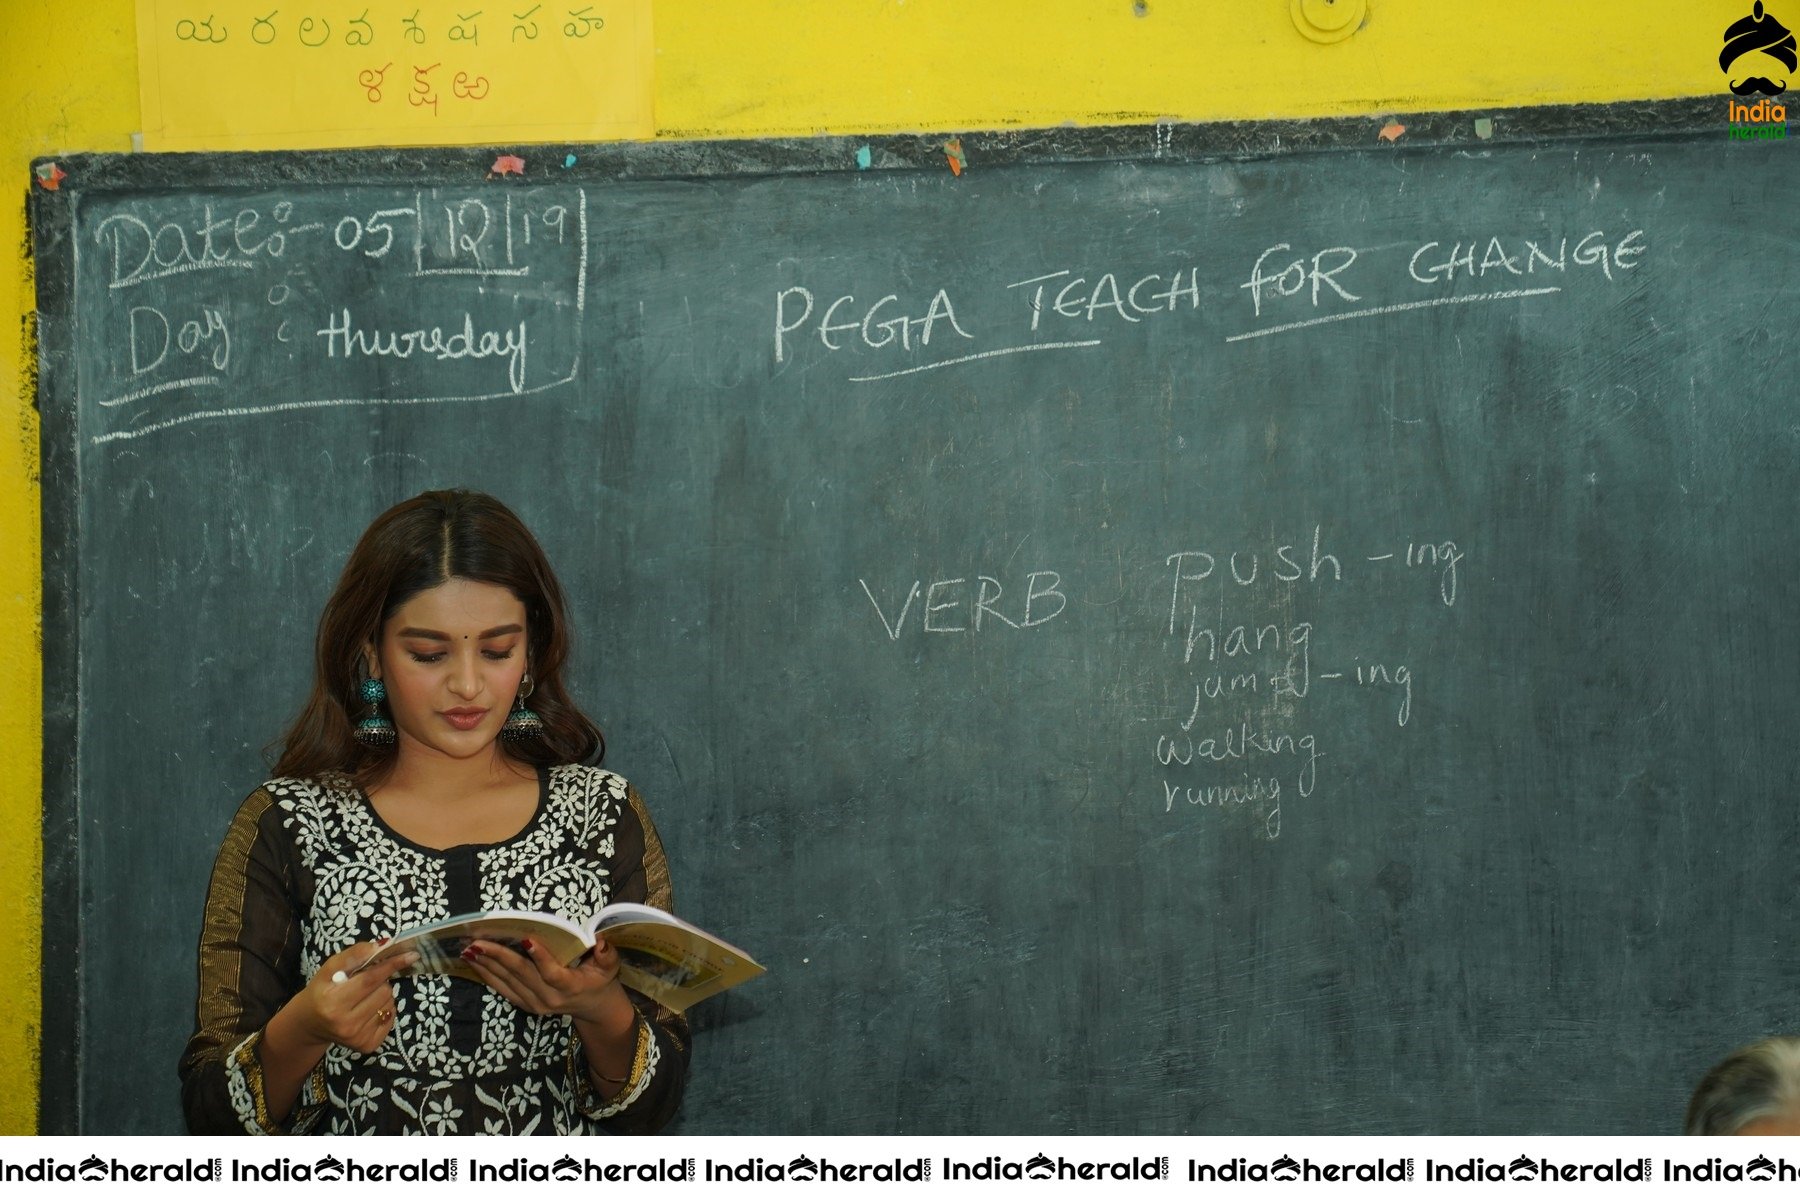 య ర ల వ శ ష స హ
ళ క్ష ఱ
India
herald
Date:- 05/12/19
Day : thursday
PEGA TEACH FOR CHANGE
VERB
push - ing
hang
jump - ing
walking
running
Indiaherald.com Indiaherald.com Indiaherald.com Indiaherald.com Indiaherald.com Indiaherald.com Indiaherald.com Indiahe